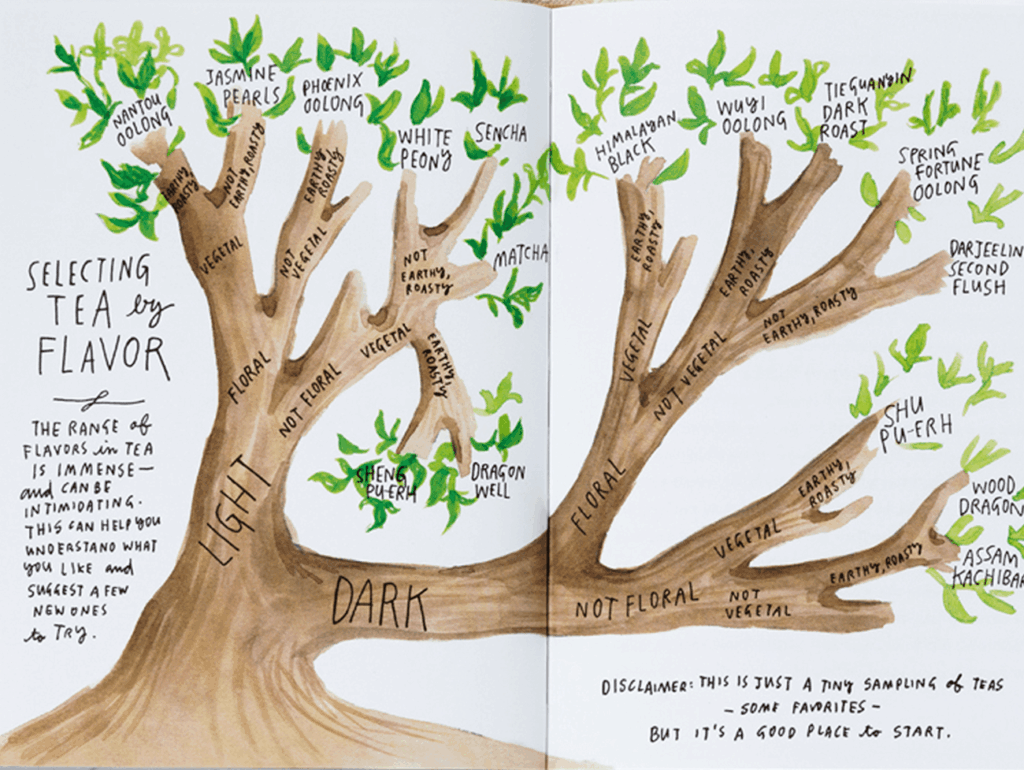 SELECTING
TEA by
FLAVOR
THE RANGE of
FLAVORS in TEA
IS IMMENSE—
and CAN BE
INTIMIDATING.
THIS CAN HELP YOU
UNDERSTAND WHAT
YOU LIKE and
SUGGEST A FEW
NEW ONES
to TRY.
NANTOU
OOLONG
JASMINE
PEARLS
PHOENIX
OOLONG
WHITE
PEONY
SENCHA
MATCHA
EARTHY,
ROASTY
NOT
EARTHY, ROASTY
EARTHY,
ROASTY
NOT
EARTHY,
ROASTY
VEGETAL
NOT
VEGETAL
VEGETAL
EARTHY,
ROASTY
FLORAL
NOT FLORAL
SHENG
PU-ERH
DRAGON
WELL
LIGHT
DARK
HIMALAYAN
BLACK
WUYI
OOLONG
TIEGUANYIN
DARK
ROAST
SPRING
FORTUNE
OOLONG
DARJEELIN
SECOND
FLUSH
EARTHY,
ROASTY
EARTHY,
ROASTY
NOT
EARTHY, ROASTY
VEGETAL
NOT VEGETAL
FLORAL
SHU
PU-ERH
EARTHY,
ROASTY
WOOD
DRAGON
VEGETAL
EARTHY, ROASTY
ASSAM
KACHIBA
NOT FLORAL
NOT
VEGETAL
DISCLAIMER: THIS IS JUST A TINY SAMPLING of TEAS
– SOME FAVORITES –
BUT IT'S A GOOD PLACE to START.